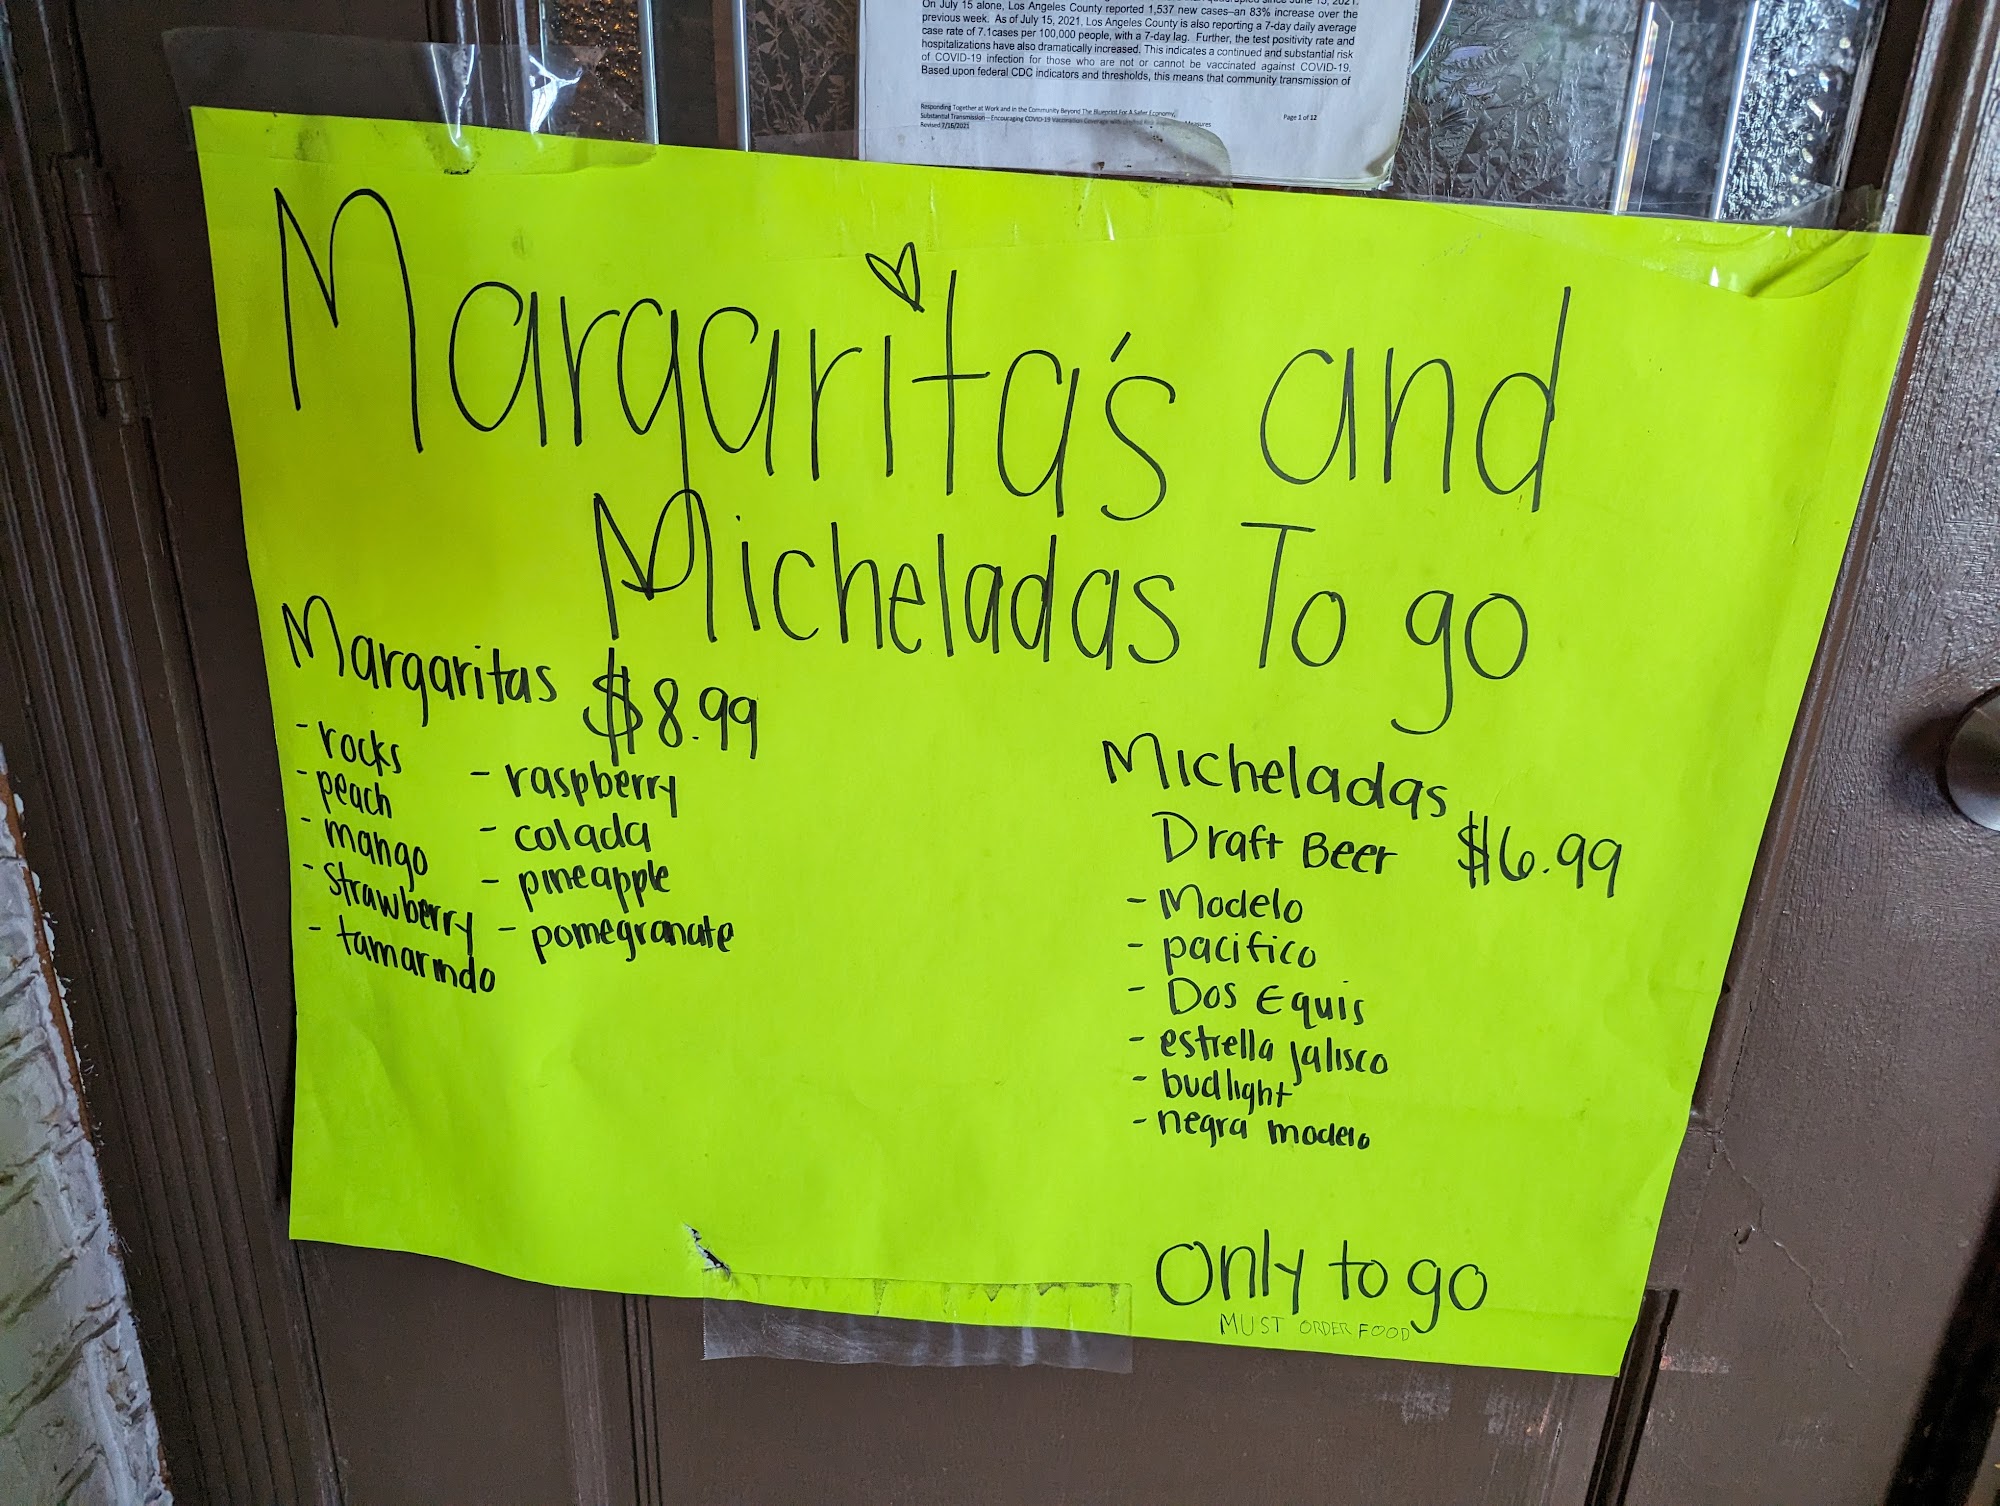 On July 15 alone, Los Angeles County reported 1,537 new cases–an 83% increase over the
previous week. As of July 15, 2021, Los Angeles County is also reporting a 7-day daily average
case rate of 7.1cases per 100,000 people, with a 7-day lag. Further, the test positivity rate and
hospitalizations have also dramatically increased. This indicates a continued and substantial risk
of COVID-19 infection for those who are not or cannot be vaccinated against COVID-19.
Based upon federal CDC indicators and thresholds, this means that community transmission of
Responding Together at Work and in the Community Beyond The Blueprint For A Safer Economy,
Substantial Transmission—Encouraging COVID-19 Vaccination Coverage with Measures
Revised 7/16/2021
Page 1 of 12
Margarita's and
Micheladas To go
Margaritas $8.99
- rocks
- peach
- mango
- strawberry
- tamarindo
- raspberry
- colada
- pineapple
- pomegranate
Micheladas
Draft Beer $6.99
- Modelo
- pacifico
- Dos Equis
- estrella jalisco
- budlight
- negra modelo
Only to go
MUST ORDER FOOD